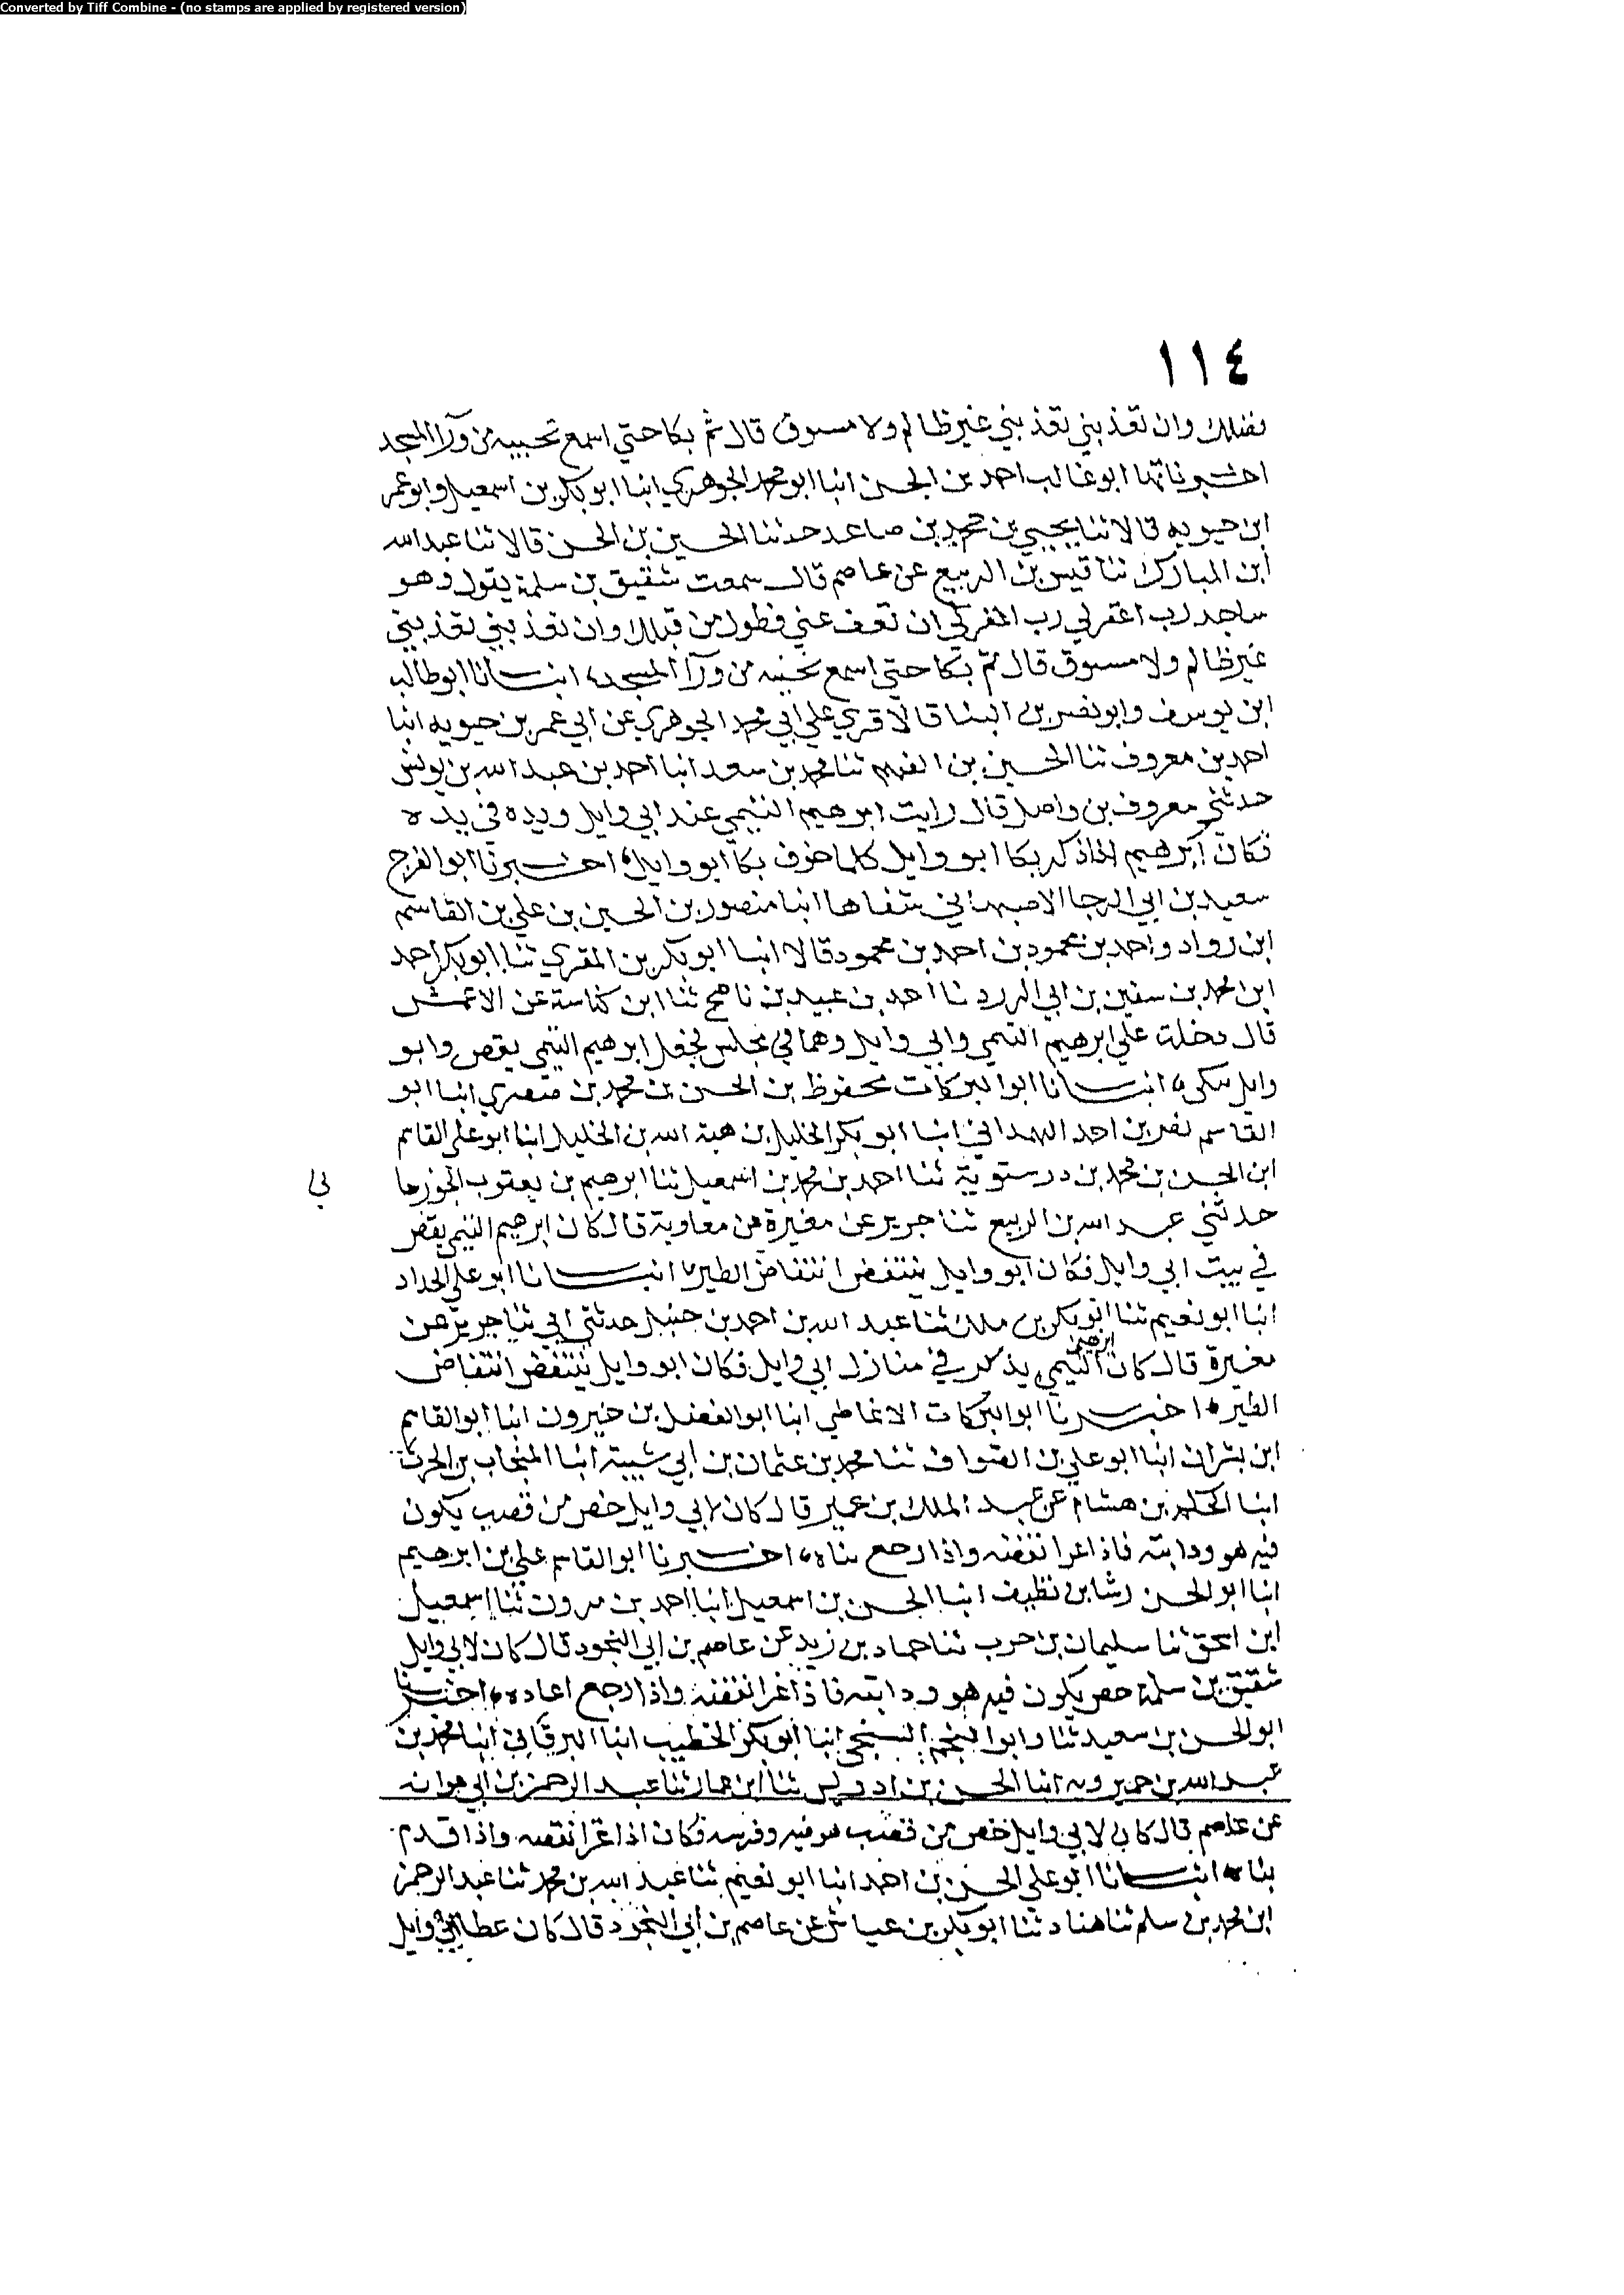 Converted by Tiff Combine - (no stamps are applied by registered version)
١١٤
بفضلك وان تعذبني تعذبني غير ظالم ولا مسبوق قال ثم بكا حتي اسمع نحيبه من ورآ المسجد
اخبرناتها ابو غالب احمد بن الحسن انبا ابو محمد الجوهري انبا ابو بكر بن اسمعيل وابو عمر
ابن حيويه قالا ثنا يحيي بن محمد بن صاعد حدثنا الحسين بن الحسن قالا ثنا عبد الله
ابن المبارك ثنا قيس بن الربيع عن عاصم قال سمعت شقيق بن سلمة يقول وهو
ساجد رب اغفر لي رب اغفر لي ان تعف عني فطول من قبلك وان تعذبني تعذبني
غير ظالم ولا مسبوق قال ثم بكا حتي اسمع نحيبه من ورآ المسجد، انبــانا ابو طالب
ابن يوسف وابو نصر بن البنا قالا قري علي ابي محمد الجوهري عن ابي عمر بن حيويه انبا
احمد بن معروف ثنا الحسين بن الفهم ثنا محمد بن سعد انبا احمد بن عبد الله بن يونس
حدثني معروف بن واصل قال رايت ابرهيم التيمي عند ابي وايل ويده في يده
فكان ابرهيم اذا ذكر بكا ابو وايل كلما خوف بكا ابو وايل، اخــبرنا ابو الفرج
سعيد بن ابي الرجا الاصبهاني شفاها انبا منصور بن الحسين بن علي بن القاسم
ابن رواد واحمد بن محمود بن احمد بن محمود قالا انبا ابو بكر بن المقري ثنا ابو بكر احمد
ابن محمد بن سفين بن ابي الدرد ثنا احمد بن عبيد بن ناصح ثنا ابن كناسة عن الاعمش
قال دخلت علي ابرهيم التيمي وابي وايل وهما في مجلس فجعل ابرهيم التيمي يقص وابو
وايل يبكي، انبــانا ابو البركات محفوظ بن الحسن بن محمد بن صصري انبا ابو
القاسم نصر بن احمد الهمداني انبا ابو بكر الخليل بن هبة الله بن الخليل انبا ابو علي القاسم
ابن الحسن بن محمد بن درستويه ثنا احمد بن محمد بن اسمعيل ثنا ابرهيم بن يعقوب الجوزجا
ني
حدثني عبد الله بن الربيع ثنا جرير عن مغيرة من معاوية قال كان ابرهيم التيمي يقص
في بيت ابي وايل فكان ابو وايل ينتفض انتفاض الطير، انبــانا ابو علي الحداد
انبا ابو نعيم ثنا ابو بكر بن ملك ثنا عبد الله بن احمد بن حنبل حدثني ابي ثنا جرير عن
مغيرة قال كان ابرهيم التيمي يذكر في منازل ابي وايل فكان ابو وايل ينتفض انتفاض
الطير، اخبــرنا ابو البركات الانماطي انبا ابو الفضل بن خيرون انبا ابو القاسم
ابن بشران انبا ابو علي بن الصواف ثنا محمد بن عثمان بن ابي شيبة انبا المنجاب بن الحرث
انبا الحكم بن هشام عن عبد الملك بن عمير قال كان لابي وايل خص من قصب يكون
فيه هو ودابته فاذا غزا نقضه واذا رجع بناه، اخــبرنا ابو القاسم علي بن ابرهيم
انبا ابو الحسن رشا بن نظيف انبا الحسن بن اسمعيل انبا احمد بن مرون ثنا اسمعيل
ابن اسحق ثنا سليمان بن حرب ثنا حماد بن زيد عن عاصم بن ابي النجود قال كان لابي وايل
شقيق بن سلمة خص يكون فيه هو ودابته فاذا غزا نقضه واذا رجع اعاده، اخبــرنا
ابو الحسن بن سعيد ثنا وابو النجم الشيحي انبا ابو بكر الخطيب انبا البرقاني انبا محمد بن
عبد الله بن خميرويه انبا الحسن بن ادريس ثنا ابن عمار ثنا عبد الرحمن بن ابي عوانه
عن عاصم قال كان لابي وايل خص من قصب هو فيه وفرسه فكان اذا غزا نقضه واذا قدم
بناه، انبــانا ابو علي الحسن بن احمد انبا ابو نعيم ثنا عبد الله بن محمد ثنا عبد الرحمن
ابن محمد بن سلم ثنا هناد ثنا ابو بكر بن عياش عن عاصم بن ابي النجود قال كان عطا ابي وايل